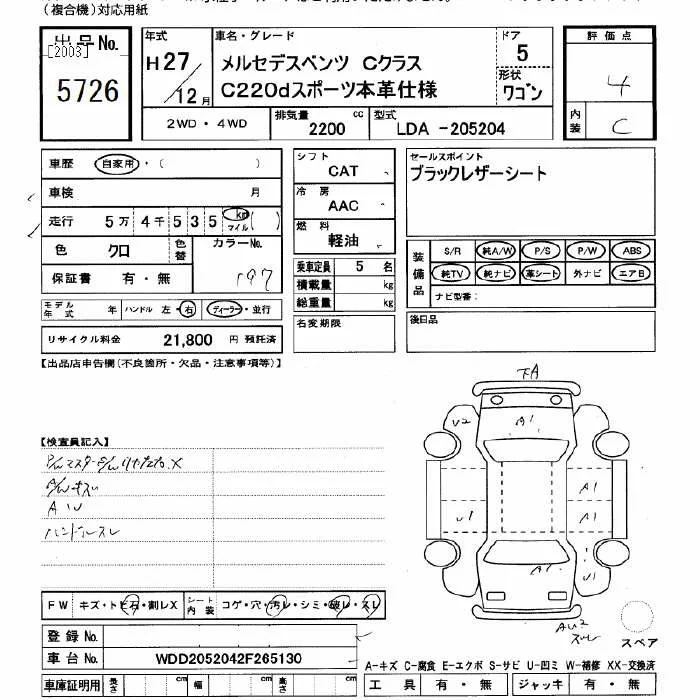 (複合機)対応用紙
出品No.
[2003]
5726
年式
H27/12月
車名・グレード
メルセデスベンツ Cクラス
C220dスポーツ本革仕様
ドア
5
形状
ワゴン
評価点
4
内装
C
2WD・4WD
排気量
2200 cc
型式
LDA-205204
車歴 自家用・( )
車検 月
走行 5万4千535 km マイル( )
色 クロ 色替 カラーNo. 197
保証書 有・無
モデル年式 年 ハンドル 左・右 ディーラー・並行
リサイクル料金 21,800 円 預託済
シフト
CAT
冷房
AAC
燃料
軽油
乗車定員 5 名
積載量 kg
総重量 kg
名変期限
セールスポイント
ブラックレザーシート
装備品
S/R 純A/W P/S P/W ABS
純TV 純ナビ 革シート 外ナビ エアB
ナビ型番:
後日品
【出品店申告欄(不良箇所・欠品・注意事項等)】
【検査員記入】
A/Wキズ
AW
ハンドルスレ
下A
U2
A1
A1
A1
U1
A1
U1
AU2
スレ
スペア
FW キズ・トビ石・割レX シート内装 コゲ・穴・汚レ・シミ・破レ・スレ
登録No.
車台No. WDD2052042F265130
車庫証明用 長さ cm 幅 cm 高さ cm
A-キズ C-腐食 E-エクボ S-サビ U-凹ミ W-補修 XX-交換済
工具 有・無 ジャッキ 有・無